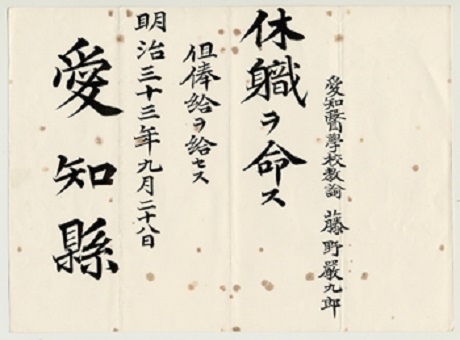 愛知醫學校教諭 藤野嚴九郎
休職ヲ命ス
但俸給ヲ給セス
明治三十三年九月二十八日
愛知縣